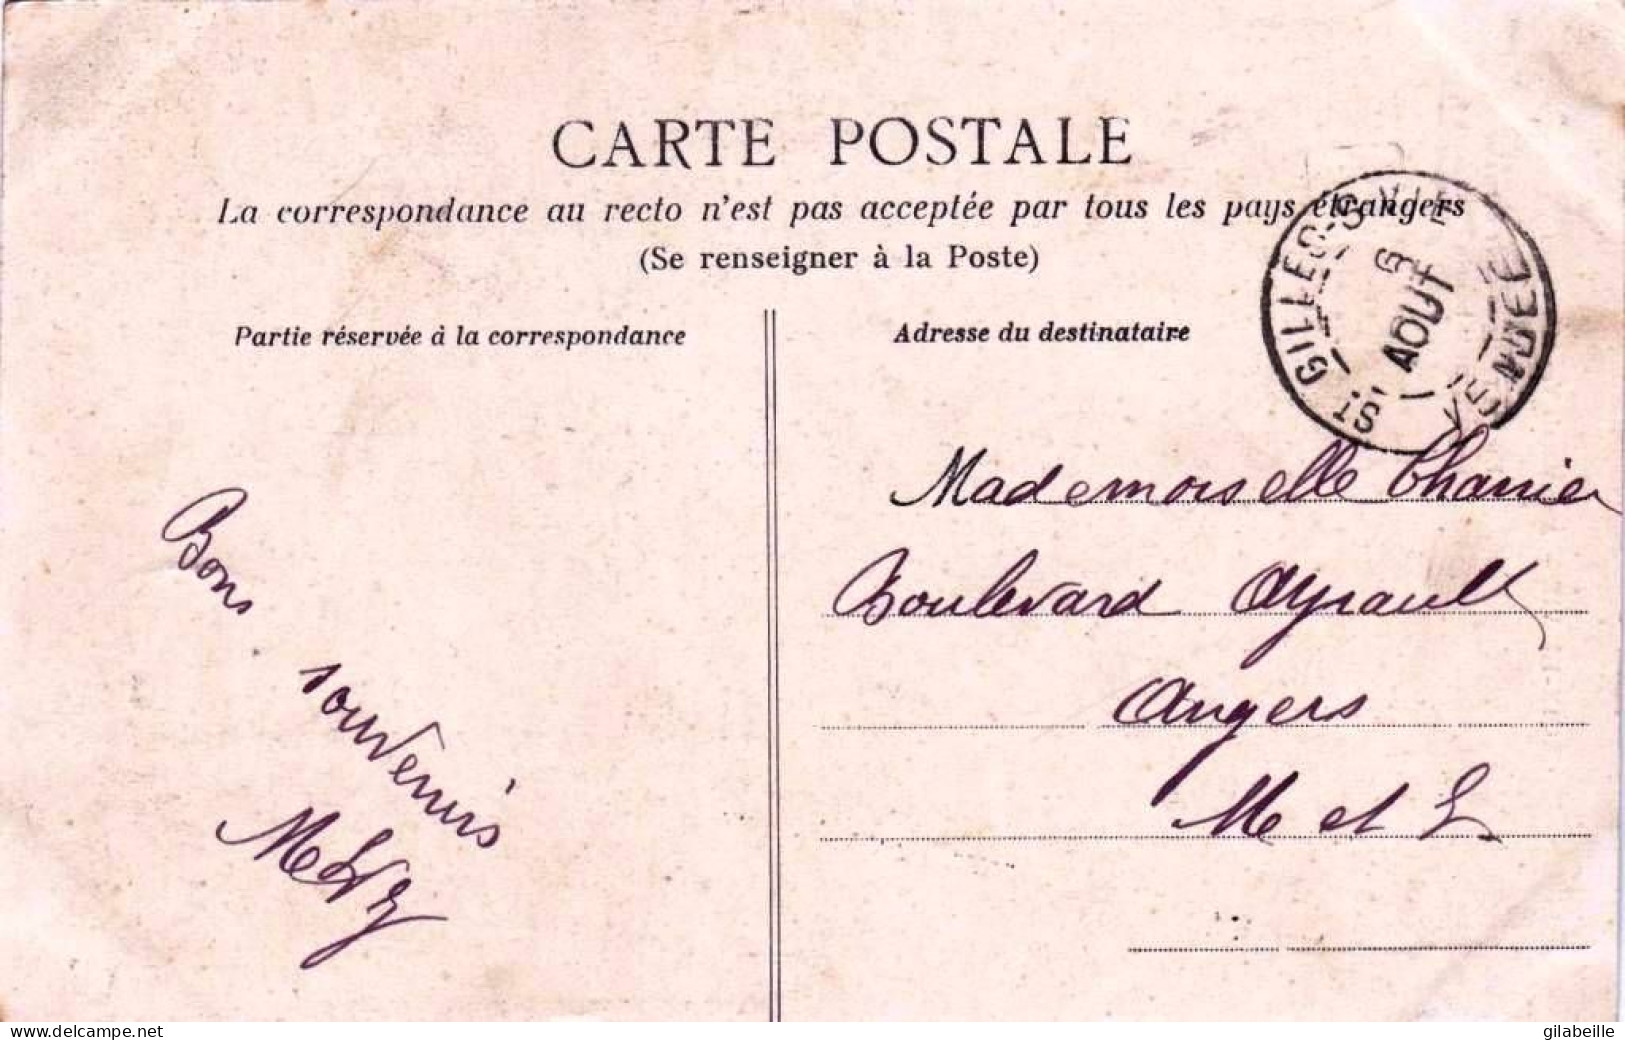 CARTE POSTALE
La correspondance au recto n'est pas acceptée par tous les pays étrangers
(Se renseigner à la Poste)
Partie réservée à la correspondance
Adresse du destinataire
ST GILLES-S-VIE
6
AOUT
VENDEE
Mademoiselle
Boulevard Ayrault
Angers
M et L
Bons
souvenirs
www.delcampe.net
gilabeille